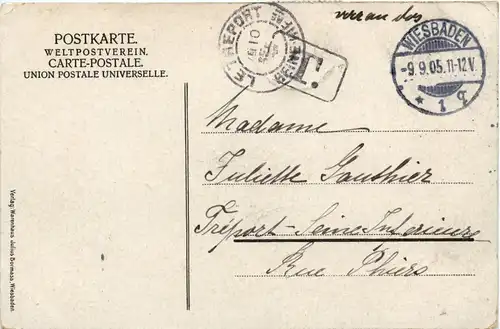 POSTKARTE.
WELTPOSTVEREIN.
CARTE-POSTALE.
UNION POSTALE UNIVERSELLE.
LE TREPORT
T.
WIESBADEN
-9.9.05.11-12V.
* 1 q
Madame
Juliette Gauthier
Tréport-Seine Inferieure
Rue Thiers
Verlag: Warenhaus Julius Bormass, Wiesbaden.